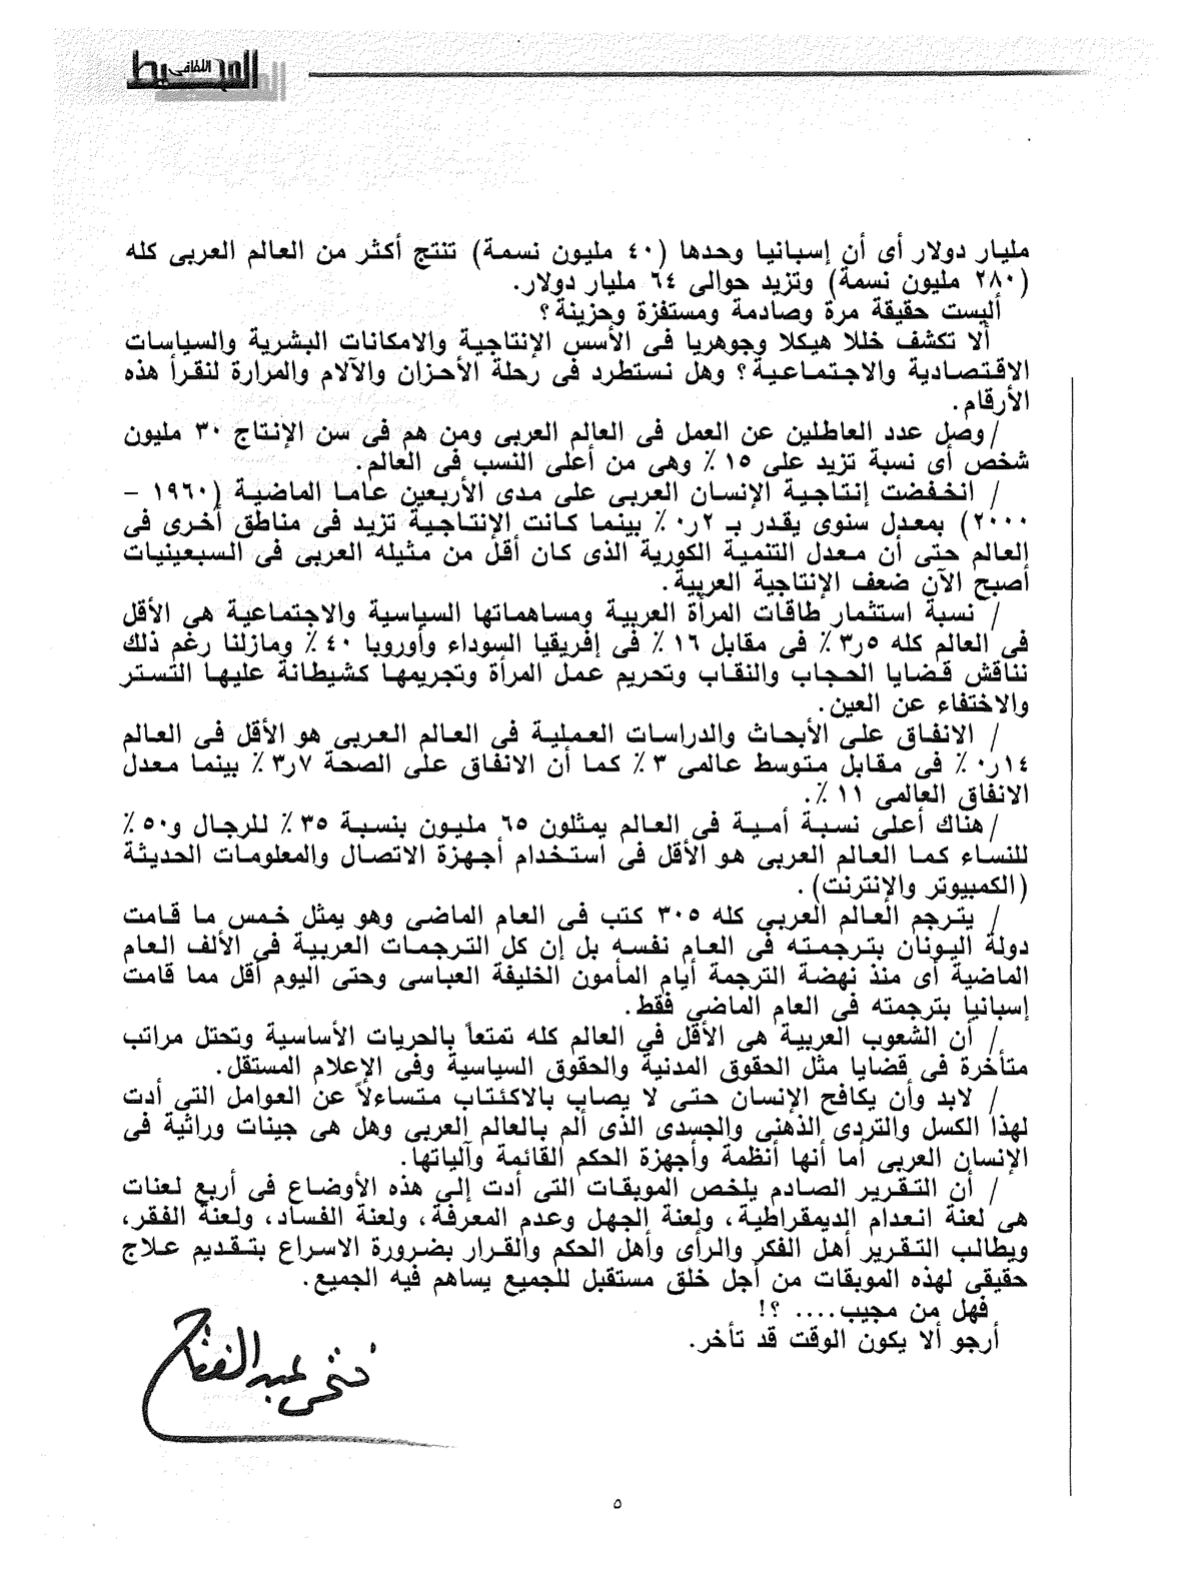 المحيط الثقافى
مليار دولار أى أن إسبانيا وحدها (٤٠ مليون نسمة) تنتج أكثر من العالم العربى كله
(٢٨٠ مليون نسمة) وتزيد حوالى ٦٤ مليار دولار.
أليست حقيقة مرة وصادمة ومستفزة وحزينة؟
ألا تكشف خللا هيكلا وجوهريا فى الأسس الإنتاجية والامكانات البشرية والسياسات
الاقتصادية والاجتماعية؟ وهل نستطرد فى رحلة الأحزان والآلام والمرارة لنقرأ هذه
الأرقام.
/وصل عدد العاطلين عن العمل فى العالم العربى ومن هم فى سن الإنتاج ٣٠ مليون
شخص أى نسبة تزيد على ١٥ ٪ وهى من أعلى النسب فى العالم.
/ انخفضت إنتاجية الإنسان العربى على مدى الأربعين عاما الماضية (١٩٦٠ –
٢٠٠٠) بمعدل سنوى يقدر بـ ٢ر٠ ٪ بينما كانت الإنتاجية تزيد فى مناطق أخرى فى
العالم حتى أن معدل التنمية الكورية الذى كان أقل من مثيله العربى فى السبعينيات
أصبح الآن ضعف الإنتاجية العربية.
/ نسبة استثمار طاقات المرأة العربية ومساهماتها السياسية والاجتماعية هى الأقل
فى العالم كله ٥ر٣ ٪ فى مقابل ١٦ ٪ فى إفريقيا السوداء وأوروبا ٤٠ ٪ ومازلنا رغم ذلك
نناقش قضايا الحجاب والنقاب وتحريم عمل المرأة وتجريمها كشيطانة عليها التستر
والاختفاء عن العين.
/ الانفاق على الأبحاث والدراسات العملية فى العالم العربى هو الأقل فى العالم
١٤ر٠ ٪ فى مقابل متوسط عالمى ٣ ٪ كما أن الانفاق على الصحة ٧ر٣ ٪ بينما معدل
الانفاق العالمى ١١ ٪.
/هناك أعلى نسبة أمية فى العالم يمثلون ٦٥ مليون بنسبة ٣٥ ٪ للرجال و٥٠ ٪
للنساء كما العالم العربى هو الأقل فى استخدام أجهزة الاتصال والمعلومات الحديثة
(الكمبيوتر والإنترنت) .
/ يترجم العالم العربى كله ٣٠٥ كتب فى العام الماضى وهو يمثل خمس ما قامت
دولة اليونان بترجمته فى العام نفسه بل إن كل الترجمات العربية فى الألف العام
الماضية أى منذ نهضة الترجمة أيام المأمون الخليفة العباسى وحتى اليوم أقل مما قامت
إسبانيا بترجمته فى العام الماضى فقط.
/ أن الشعوب العربية هى الأقل فى العالم كله تمتعاً بالحريات الأساسية وتحتل مراتب
متأخرة فى قضايا مثل الحقوق المدنية والحقوق السياسية وفى الإعلام المستقل.
/ لابد وأن يكافح الإنسان حتى لا يصاب بالاكئتاب متساءلاً عن العوامل التى أدت
لهذا الكسل والتردى الذهنى والجسدى الذى ألم بالعالم العربى وهل هى جينات وراثية فى
الإنسان العربى أما أنها أنظمة وأجهزة الحكم القائمة وآلياتها.
/ أن التقرير الصادم يلخص الموبقات التى أدت إلى هذه الأوضاع فى أربع لعنات
هى لعنة انعدام الديمقراطية، ولعنة الجهل وعدم المعرفة، ولعنة الفساد، ولعنة الفقر،
ويطالب التقرير أهل الفكر والرأى وأهل الحكم والقرار بضرورة الاسراع بتقديم علاج
حقيقى لهذه الموبقات من أجل خلق مستقبل للجميع يساهم فيه الجميع.
فهل من مجيب.... ؟!
أرجو ألا يكون الوقت قد تأخر.
فتحى عبد الفتاح
٥